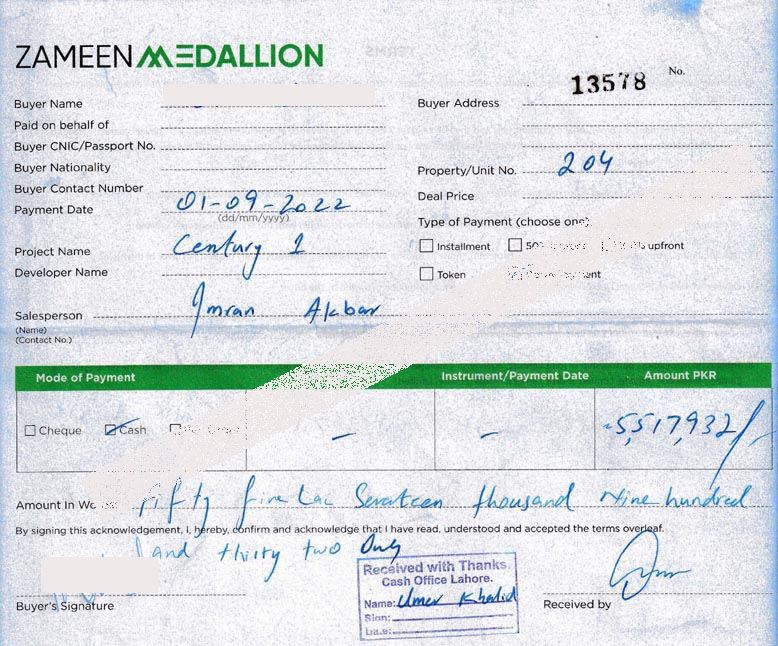 ZAMEEN MEDALLION
13578 No.
Buyer Name
Buyer Address
Paid on behalf of
Buyer CNIC/Passport No.
Buyer Nationality
Property/Unit No. 204
Buyer Contact Number
Deal Price
Payment Date 01-09-2022
(dd/mm/yyyy)
Type of Payment (choose one)
Project Name Century 1
Installment 50% upfront
Developer Name
Token
Salesperson Imran Akbar
(Name)
(Contact No.)
Mode of Payment Instrument/Payment Date Amount PKR
Cheque Cash - - 5,517,932/-
Amount In Wo Fifty five Lac Seventeen thousand Nine hundred
By signing this acknowledgement, I, hereby, confirm and acknowledge that I have read, understood and accepted the terms overleaf.
and thirty two Only
Received with Thanks.
Cash Office Lahore.
Name: Umer Khalid
Sign:
Date:
Buyer's Signature
Received by